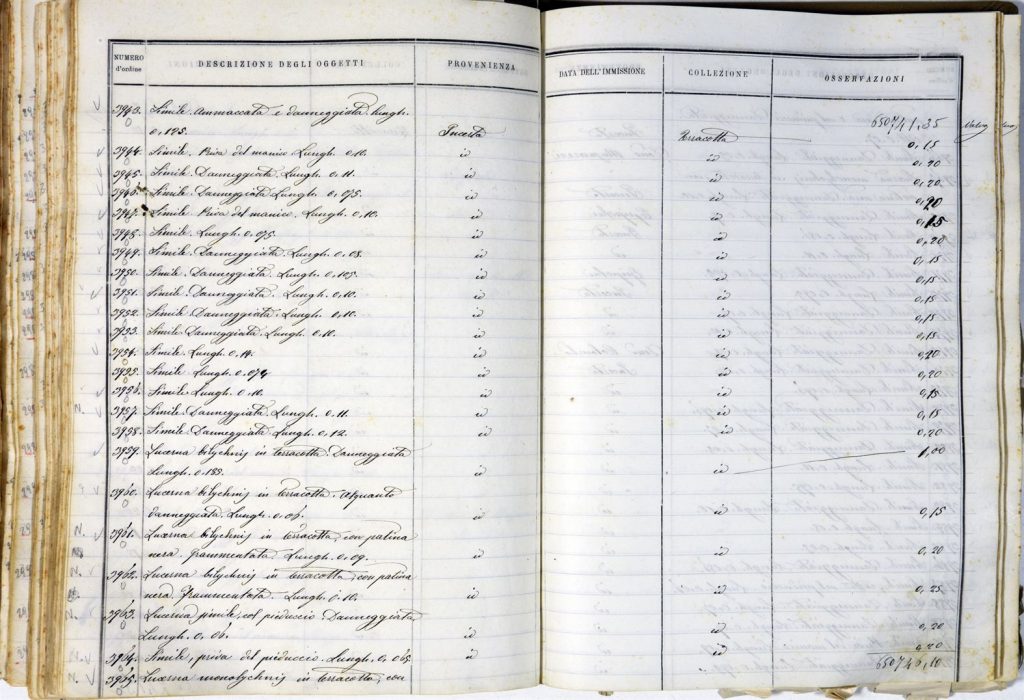 NUMERO d'ordine DESCRIZIONE DEGLI OGGETTI PROVENIENZA DATA DELL'IMMISSIONE COLLEZIONE OSSERVAZIONI
650741,35
3943. Simile. Ammaccata e danneggiata. Lungh.
0,125. Incerta Terracotta 0,15
3944. Simile. Priva del manico. Lungh. 0,10. id id 0,20
3945. Simile. Danneggiata. Lungh. 0,11. id id 0,20
3946. Simile. Danneggiata. Lungh. 0,075. id id 0,20
3947. Simile. Priva del manico. Lungh. 0,10. id id 0,15
3948. Simile. Lungh. 0,075. id id 0,20
3949. Simile. Danneggiata. Lungh. 0,08. id id 0,15
3950. Simile. Danneggiata. Lungh. 0,105. id id 0,15
3951. Simile. Danneggiata. Lungh. 0,10. id id 0,15
3952. Simile. Danneggiata. Lungh. 0,10. id id 0,15
3953. Simile. Danneggiata. Lungh. 0,10. id id 0,15
3954. Simile. Lungh. 0,14. id id 0,20
3955. Simile. Lungh. 0,074. id id 0,20
3956. Simile Lungh. 0,10. id id 0,15
N. 3957. Simile. Danneggiata. Lungh. 0,11. id id 0,15
3958. Simile. Danneggiata. Lungh. 0,12. id id 0,20
3959. Lucerna bilychnis in terracotta. Danneggiata 1,00
Lungh. 0,185. id id
3960. Lucerna bilychnis in terracotta. Alquanto
danneggiata. Lungh. 0,06. id id 0,15
N. 3961. Lucerna bilychnis in terracotta con patina
nera. Frammentata. Lungh. 0,09. id id 0,20
N. 3962. Lucerna bilychnis in terracotta, con patina
nera. Frammentata. Lungh. 0,10. id id 0,25
N. 3963. Lucerna pensile, col peduccio. Danneggiata
Lungh. 0,06. id id 0,20
N. 3964. Simile, priva del peduccio. Lungh. 0,065. id id 0,20
3965. Lucerna monolychnis in terracotta, con 650746,10